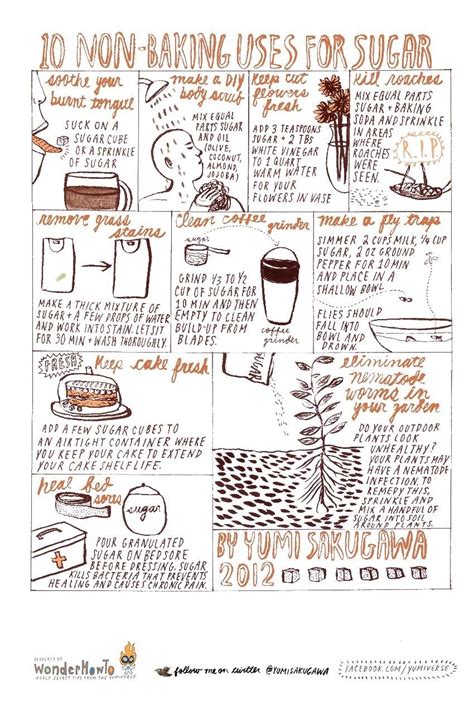 10 NON-BAKING USES FOR SUGAR
soothe your
burnt tongue
SUCK ON A
SUGAR CUBE
OR A SPRINKLE
OF SUGAR
make a DIY
body scrub
MIX EQUAL
PARTS SUGAR
AND OIL
(OLIVE,
COCONUT,
ALMOND,
JOJOBA)
keep cut
flowers
fresh
ADD 3 TEASPOONS
SUGAR + 2 TBS
WHITE VINEGAR
TO 1 QUART
WARM WATER
FOR YOUR
FLOWERS IN VASE
kill roaches
MIX EQUAL PARTS
SUGAR + BAKING
SODA AND SPRINKLE
IN AREAS
WHERE
ROACHES
WERE
SEEN.
R.I.P
remove grass
stains
MAKE A THICK MIXTURE OF
SUGAR + A FEW DROPS OF WATER
AND WORK INTO STAIN. LET SIT
FOR 30 MIN + WASH THOROUGHLY.
Clean coffee
grinder
sugar
GRIND 1/3 TO 1/2
CUP OF SUGAR FOR
10 MIN AND THEN
EMPTY TO CLEAN
BUILD-UP FROM
BLADES.
coffee
grinder
make a fly trap
SIMMER 2 CUPS MILK, 1/4 CUP
SUGAR, 2 OZ GROUND
PEPPER FOR 10 MIN
AND PLACE IN A
SHALLOW BOWL
FLIES SHOULD
FALL INTO
BOWL AND
DROWN.
FRESH
keep cake fresh
ADD A FEW SUGAR CUBES TO
AN AIRTIGHT CONTAINER WHERE
YOU KEEP YOUR CAKE TO EXTEND
YOUR CAKE SHELF LIFE.
eliminate
nematode
worms in
your garden
DO YOUR OUTDOOR
PLANTS LOOK
UNHEALTHY?
YOUR PLANTS MAY
HAVE A NEMATODE
INFECTION. TO
REMEDY THIS,
SPRINKLE AND
MIX A HANDFUL OF
SUGAR INTO SOIL
AROUND PLANTS.
heal bed
sores
sugar
POUR GRANULATED
SUGAR ON BEDSORE
BEFORE DRESSING. SUGAR
KILLS BACTERIA THAT PREVENTS
HEALING AND CAUSES CHRONIC PAIN.
BY YUMI SAKUGAWA
2012
PROPERTY OF
WonderHowTo
follow me on twitter @YUMISAKUGAWA
FACEBOOK.COM/YUMIVERSE